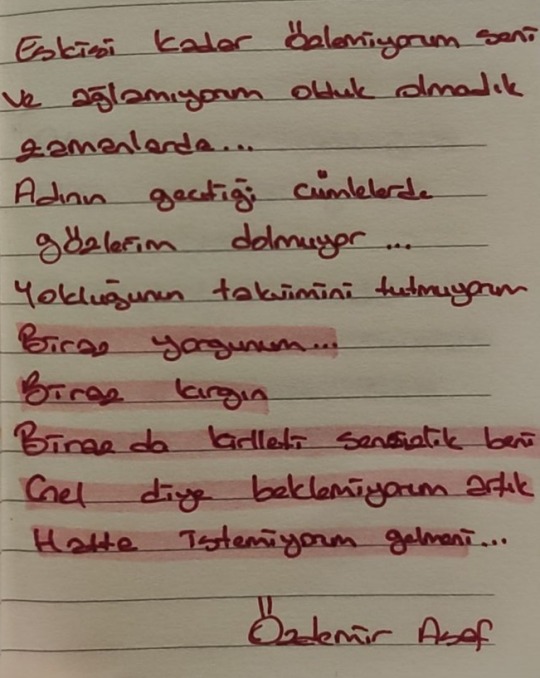 Eskisi kadar özlemiyorum seni
ve ağlamıyorum olduk olmadık
zamanlarda...
Adının geçtiği cümlelerde
gözlerim dolmuyor...
Yokluğunun takvimini tutmuyorum
Biraz yorgunum...
Biraz kırgın
Biraz da kirletti sensizlik beni
Gel diye beklemiyorum artık
Hatta istemiyorum gelmeni...
Özdemir Asaf